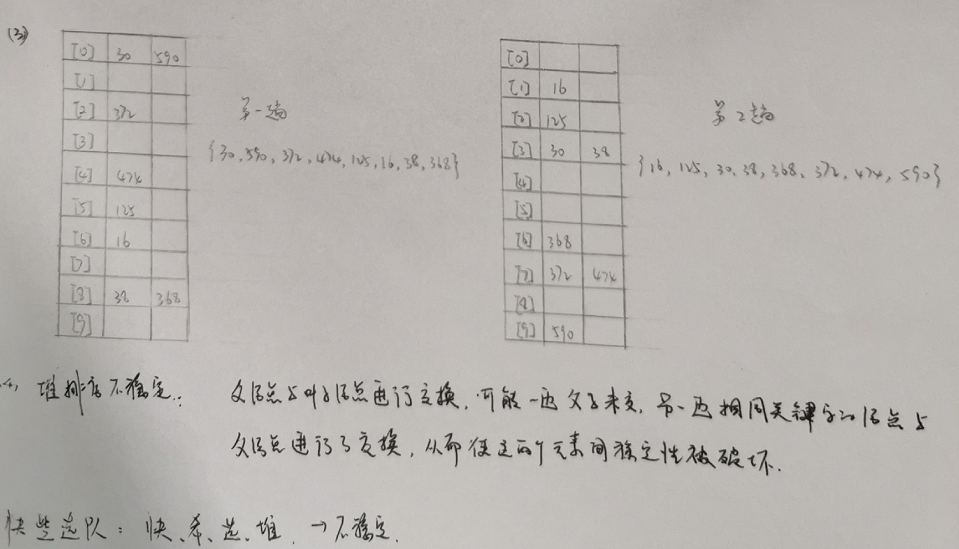 (3)
[0] 30 590
[1]
[2] 372
[3]
[4] 474
[5] 125
[6] 16
[7]
[8] 38 368
[9]
第一趟
{30, 590, 372, 474, 125, 16, 38, 368}
[0]
[1] 16
[2] 125
[3] 30 38
[4]
[5]
[6] 368
[7] 372 474
[8]
[9] 590
第2趟
{16, 125, 30, 38, 368, 372, 474, 590}
堆排序不稳定: 父结点与叶子结点进行交换,可能一边父子未交,另一边相同关键字的结点与
父结点进行了交换,从而使这两个元素间稳定性被破坏.
快些选队: 快、希、选、堆. → 不稳定.